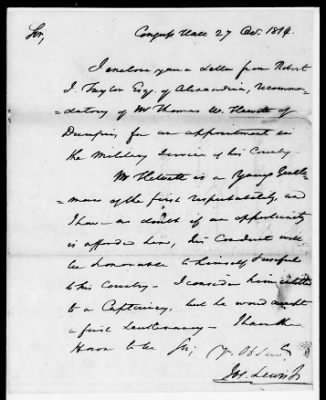 Sir, Congress Hall 27 Oct. 1814.
I enclose you a letter from Robert
I. Taylor Esq. of Alexandria, recommen-
-datory of Mr Thomas W. of
Dumfries, for an appointment in
the Military Service of his Country
Mr is a Young Gentle-
-man of the first respectability, and
I have no doubt if an opportunity
is afforded him, his Conduct will
be honorable to himself & useful
to his Country - I consider him entitled
to a Captaincy, but he would accept
a first Lieutenancy - I have the
Honor to be Sir, Yr. Ob. Servt.
Jos. Lewis Jr